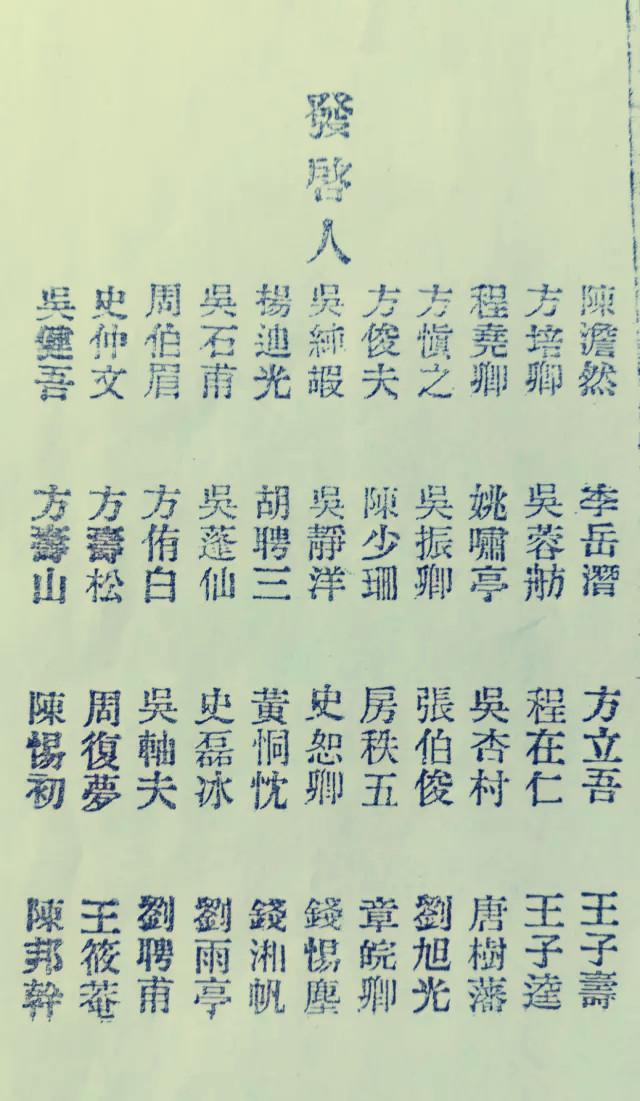 發啓人
陳澹然 李岳潛 方立吾 王子壽
方培卿 吳蓉舫 程在仁 王子達
程堯卿 姚嘯亭 吳杏村 唐樹藩
方愼之 吳振卿 張伯俊 劉旭光
方俊夫 陳少珊 房秩五 章皖卿
吳純嘏 吳靜洋 史恕卿 錢惕塵
楊迪光 胡聘三 黃恫忱 錢湘帆
吳石甫 吳蓬仙 史磊冰 劉雨亭
周伯眉 方侑白 吳軸夫 劉聘甫
史仲文 方壽松 周復夢 王筱菴
吳健吾 方壽山 陳惕初 陳邦幹